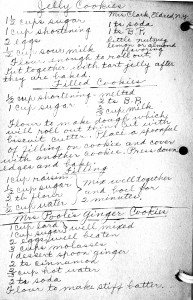 Jelly Cookies
1½ cups sugar Mrs Clark, Eldred N.Y.
1 cup shortening 1 ts soda
2 eggs 1 ts B.P.
cup sour milk little nutmeg
lemon or almond
Flour enough to roll out
Put together with tart jelly after
they are baked.
Filled Cookies
½ cup shortening - melted
1 cup sugar 2 ts B.P.
½ cup milk
Flour to make dough which
will roll out thin with
biscuit cutter. Place a spoonful
of filling on cookie and cover
with another cookie. Press down
edges and
Filling
1 cup raisins
½ cup sugar Mix well together
2 tb flour and boil for
½ cup water 2 minutes
Mrs Poole's Ginger Cookies
1 cup lard
1 cup sugar well mixed
2 eggs well beaten
2 cups molasses
1 dessert spoon ginger
2 ts cinnamon
½ cup hot water
2 ts soda
Flour to make stiff batter.